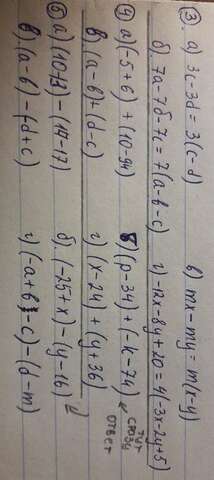 ③ а) 3c-3d = 3(c-d) в) mx-my = m(x-y)
б) 7a-7b-7c = 7(a-b-c) г) -12x-8y+20 = 4(-3x-2y+5)
④ а) (-5+6) + (10-94) б) (p-34) + (-k-74) тут сразу ответ
в) (a-b) + (d-c) г) (x-24) + (y+36)
⑥ а) (10+3) - (14-17) б) (-25+x) - (y-16)
в) (a-b) - (d+c) г) (-a+b-c) - (d-m)